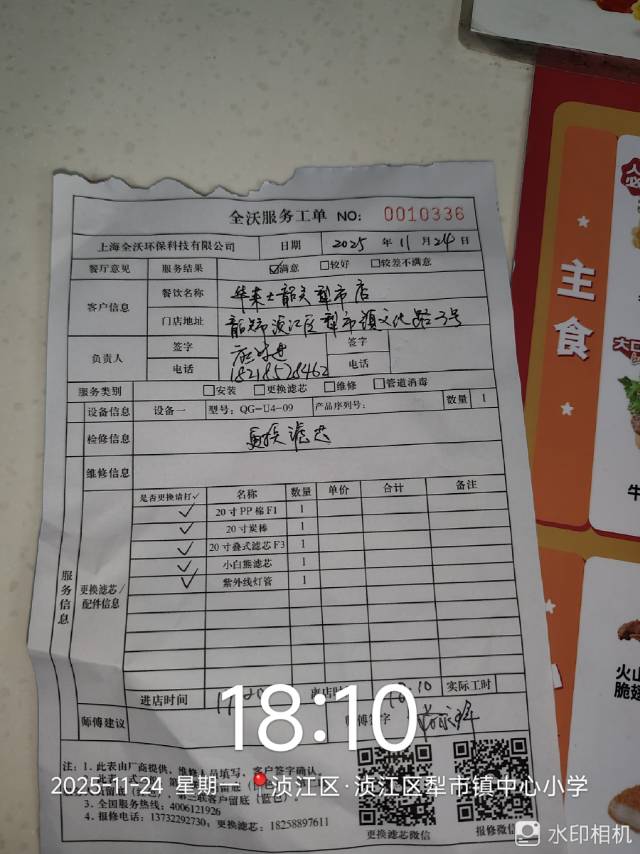 全沃服务工单 NO: 0010336
上海全沃环保科技有限公司 日期 2025 年 11 月 24 日
餐厅意见 服务结果 ☑满意 □较好 □较差不满意
客户信息 餐饮名称 华莱士韶关犁市店
门店地址 韶关市浈江区犁市镇文化路3号
负责人 签字 签字
电话 18218528462 电话
服务类别 □安装 □更换滤芯 □维修 □管道消毒
设备信息 设备一 型号: QG-U4-09 产品序列号: 数量 1
检修信息 更换滤芯
维修信息
服务信息
更换滤芯/配件信息
是否更换请打√ 名称 数量 单价 合计 备注
✓ 20寸PP棉F1 1
✓ 20寸炭棒 1
✓ 20寸叠式滤芯F3 1
✓ 小白熊滤芯 1
✓ 紫外线灯管 1
进店时间 实际工时
师傅建议 师傅签字
注: 1. 此表由厂商提供, 维修人员填写, 客户签字确认。
3. 全国服务热线: 4006121926
4. 报修电话: 13732292730; 更换滤芯: 18258897611
更换滤芯微信 报修微信
18:10
2025.11.24 星期一 浈江区·浈江区犁市镇中心小学
水印相机
主食